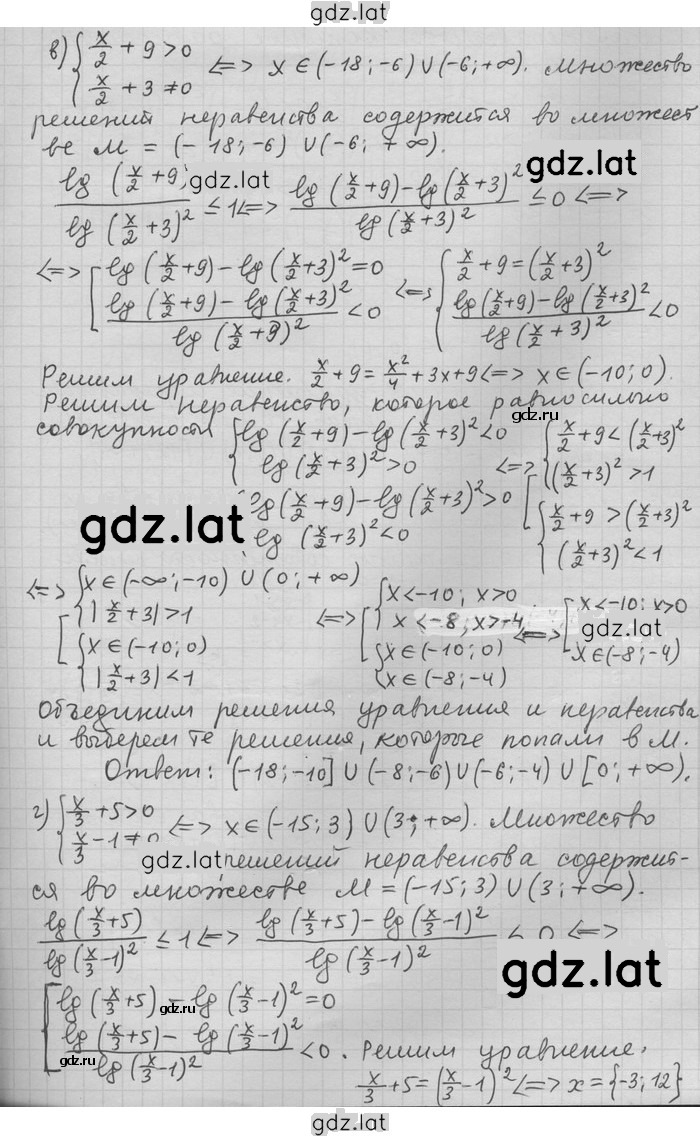 gdz.lat
в) { x/2 + 9 > 0
{ x/2 + 3 ≠ 0 <=> x ∈ (-18; -6) ∪ (-6; +∞). Множество
решений неравенства содержится во множест
ве М = (-18; -6) ∪ (-6; +∞).
gdz.lat
gdz.lat
lg(x/2 + 9) / lg(x/2 + 3)² ≤ 1 <=> (lg(x/2 + 9) - lg(x/2 + 3)²) / lg(x/2 + 3)² ≤ 0 <=>
<=> [ lg(x/2 + 9) - lg(x/2 + 3)² = 0
[ (lg(x/2 + 9) - lg(x/2 + 3)²) / lg(x/2 + 9)² < 0
<=> { x/2 + 9 = (x/2 + 3)²
{ (lg(x/2 + 9) - lg(x/2 + 3)²) / lg(x/2 + 3)² < 0
Решим уравнение. x/2 + 9 = x²/4 + 3x + 9 <=> x ∈ (-10; 0).
Решим неравенство, которое равносильно
gdz.ru
совокупности { lg(x/2 + 9) - lg(x/2 + 3)² < 0
{ lg(x/2 + 3)² > 0
lg(x/2 + 9) - lg(x/2 + 3)² > 0
lg(x/2 + 3)² < 0
<=> [ { x/2 + 9 < (x/2 + 3)²
{ (x/2 + 3)² > 1
{ x/2 + 9 > (x/2 + 3)²
{ (x/2 + 3)² < 1
gdz.lat
<=> [ { x ∈ (-∞; -10) ∪ (0; +∞)
{ |x/2 + 3| > 1
{ x ∈ (-10; 0)
{ |x/2 + 3| < 1
<=> [ { x < -10; x > 0
{ x < -8; x > -4
{ x ∈ (-10; 0)
{ x ∈ (-8; -4)
<=> [ x < -10; x > 0
gdz.lat
x ∈ (-8; -4)
Объединим решения уравнения и неравенства
и выберем те решения, которые попали в М.
Ответ: (-18; -10] ∪ (-8; -6) ∪ (-6; -4) ∪ [0; +∞).
г) { x/3 + 5 > 0
{ x/3 - 1 ≠ 0 <=> x ∈ (-15; 3) ∪ (3; +∞). Множество
gdz.lat решений неравенства содержит-
ся во множестве М = (-15; 3) ∪ (3; +∞).
lg(x/3 + 5) / lg(x/3 - 1)² ≤ 1 <=> (lg(x/3 + 5) - lg(x/3 - 1)²) / lg(x/3 - 1)² ≤ 0 <=>
gdz.lat
[ lg(x/3 + 5) - lg(x/3 - 1)² = 0
gdz.ru
[ (lg(x/3 + 5) - lg(x/3 - 1)²) / lg(x/3 - 1)² < 0. Решим уравнение.
gdz.ru
x/3 + 5 = (x/3 - 1)² <=> x = {-3; 12}
gdz.lat